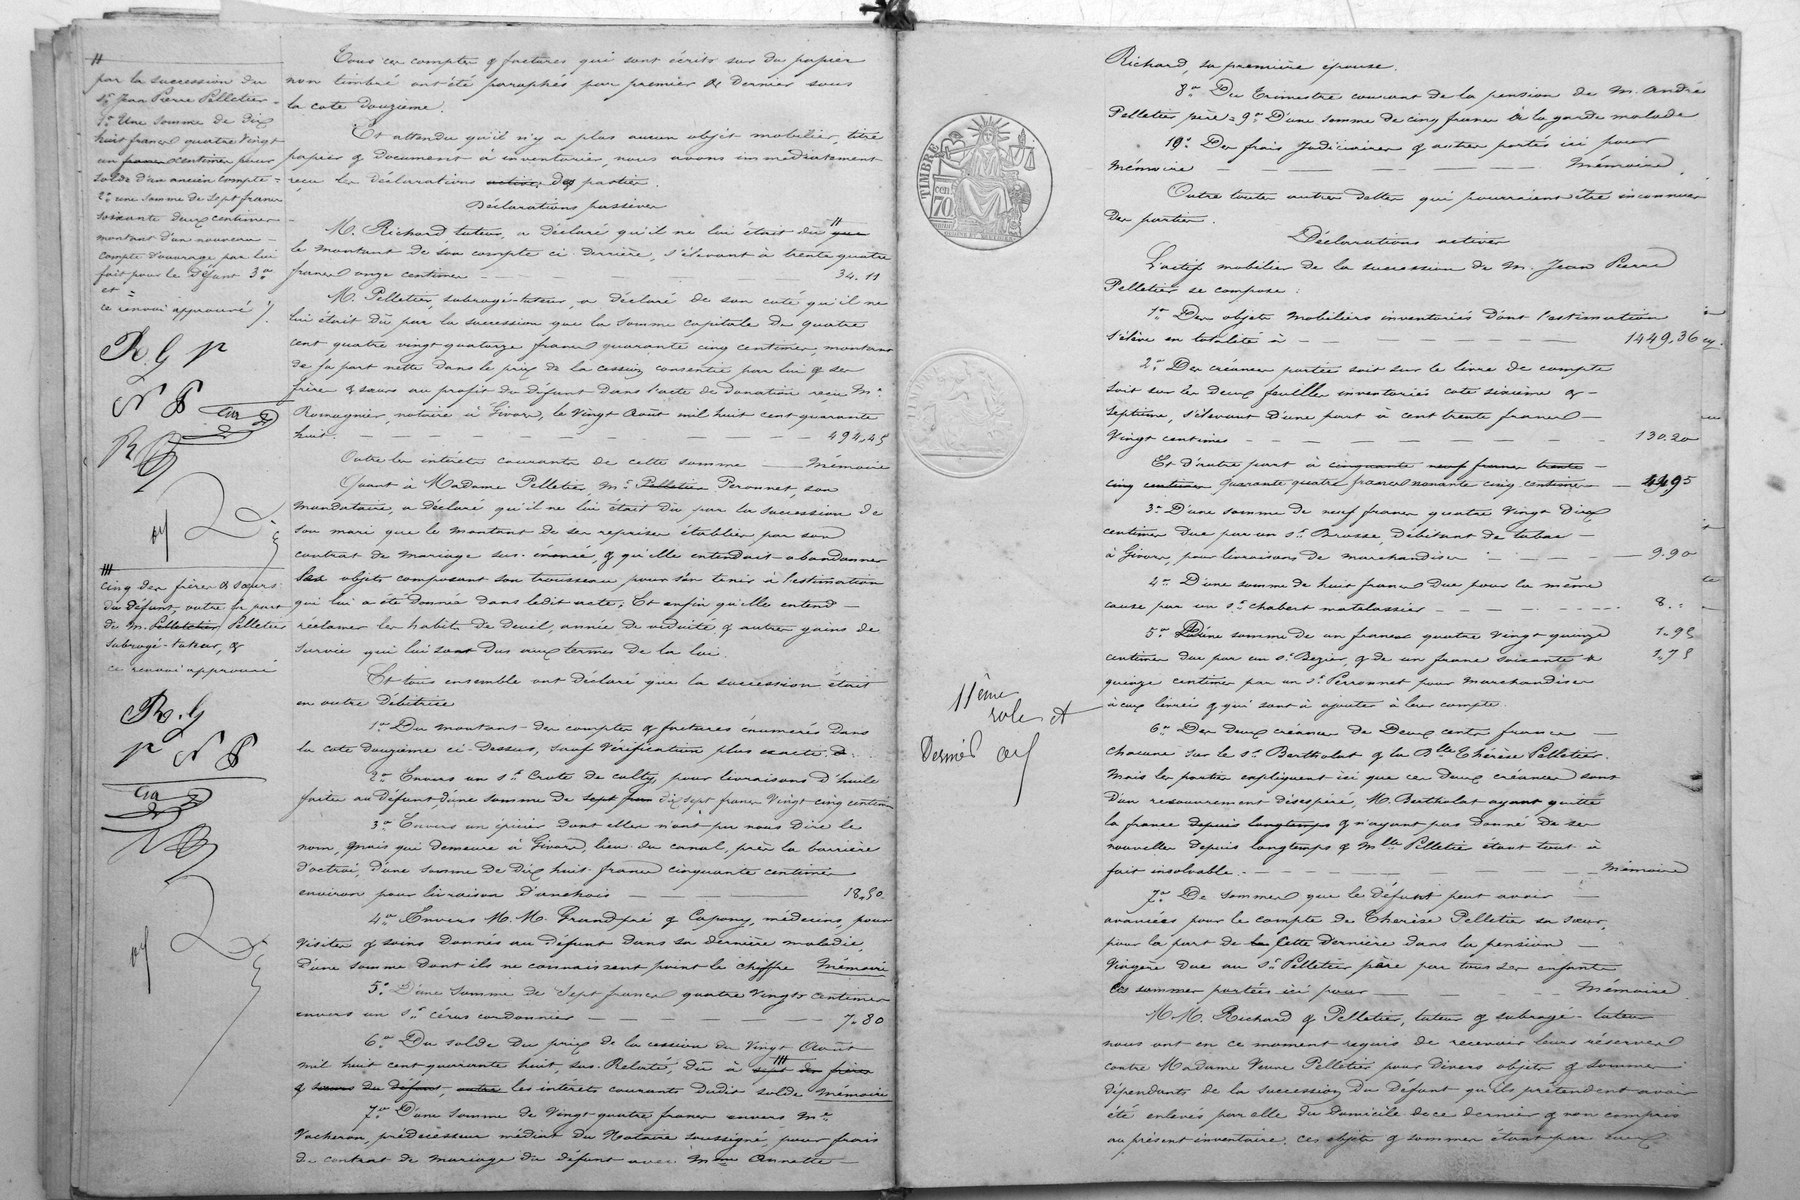 Tous ces comptes & factures qui sont écrits sur du papier
non timbré ont été paraphés par premier & dernier sous
la cote douzième.
Et attendu qu'il n'y a plus aucun objet mobilier, titre
papier & document à inventorier, nous avons immédiatement
reçu les déclarations actives des parties.
Déclarations passives
M. Richard tuteur, a déclaré qu'il ne lui était dû " que
le montant de son compte ci derrière, s'élevant à trente quatre
francs onze centimes 34.11
M. Pelletier, subrogé-tuteur, a déclaré de son coté qu'il ne
lui était dû par la succession que la somme capitale de quatre
cent quatre vingt quatorze francs quarante cinq centimes, montant
de sa part nette dans le prix de la cession consentie par lui & ses
frère & sœurs au profit du défunt dans l'acte de donation reçu Me
Romagnier, notaire à Givors, le vingt août mil huit cent quarante
huit. 494.45
Outre les intérêts courants de cette somme Mémoire
Quant à Madame Pelletier, Mr Pelletier Peronnet, son
mandataire, a déclaré qu'il ne lui était dû par la succession de
son mari que le montant de ses reprises établies par son
contrat de mariage sus-énoncé, & qu'elle entendait abandonner
les objets composant son trousseau pour s'en tenir à l'estimation
qui lui a été donnée dans ledit acte; Et enfin qu'elle entend
réclamer les habits de deuil, année de viduité & autres gains de
survie qui lui sont dus aux termes de la loi.
Et tous ensemble ont déclaré que la succession était
en outre débitrice
1° Du montant des comptes & factures énumérés dans
la cote douzième ci-dessus, sauf vérification plus exacte
2° Envers un sr Crote de culty, pour livraisons d'huile
faites au défunt d'une somme de sept fran dix sept francs vingt cinq centimes
3° Envers un épicier dont elles n'ont pu nous dire le
nom, mais qui demeure à Givors, lieu du canal, près la barrière
d'octroi, d'une somme de dix huit francs cinquante centimes
environ pour livraison d'anchois 18.50
4° Envers M. M. Grandpré & Capony, médecins, pour
visites & soins donnés au défunt dans sa dernière maladie,
d'une somme dont ils ne connaissent point le chiffre Mémoire
5° D'une somme de sept francs quatre vingts centimes
envers un sr Cérus cordonnier 7.80
6° Du solde du prix de la cession du vingt août
mil huit cent quarante huit, sus-relaté, dû à sept des frères
& sœurs du défunt, outre les intérêts courants dudit solde Mémoire
7° D'une somme de vingt quatre francs envers Me
Vacheron, prédécesseur médiat du Notaire soussigné, pour frais
de contrat de mariage du défunt avec Mme Annette
"
par la succession du
sr Jean Pierre Pelletier
1° Une somme de dix
huit francs quatre vingt
un francs centimes pour
solde d'un ancien compte
2° une somme de sept francs
soixante deux centimes
montant d'un nouveau
compte d'ouvrage par lui
fait pour le défunt 3°
et
ce renvoi approuvé
R. G P
cinq des frères & sœurs
du défunt, outre la part
de M. Pelletier Pelletier
subrogé-tuteur, &
ce renvoi approuvé
R. G
TIMBRE
cen
70
11ème
role et
Dernier
Richard, sa première épouse.
8° Du trimestre courant de la pension de M. André
Pelletier père = 9° D'une somme de cinq francs à la garde malade
10° Des frais judiciaires & autres portés ici pour
Mémoire Mémoire
Outre toutes autres dettes qui pourraient être inconnues
des parties.
Déclarations actives
L'actif mobilier de la succession de M. Jean Pierre
Pelletier se compose:
1° Des objets mobiliers inventoriés dont l'estimation
s'élève en totalité à 1449.36
2° Des créances portées soit sur le livre de compte
soit sur les deux feuilles inventoriés cote sixième &
septième, s'élevant d'une part à cent trente francs
vingt centimes 130.20
Et d'autre part à cinquante neuf francs trente
cinq centimes quarante quatre francs nonante cinq centimes 44.95
3° D'une somme de neuf francs quatre vingt dix
centimes due par un sr Brosse, débitant de tabac
à Givors, pour livraisons de marchandises 9.90
4° D'une somme de huit francs due pour la même
cause par un sr Chabert matelassier 8.
5° D'une somme de un francs quatre vingt quinze 1.95
centimes due par un sr Bezier, & de un franc soixante & 1.75
quinze centimes par un sr Perronnet pour marchandises
à eux livrées & qui sont à ajouter à leur compte.
6° Des deux créances de deux cents francs
chacune sur le sr Bertholat & la Dlle Thérèse Pelletier.
Mais les parties expliquent ici que ces deux créances sont
d'un recouvrement désespéré, M. Bertholat ayant quitté
la france depuis longtemps & n'ayant pas donné de ses
nouvelles depuis longtemps & Mlle Pelletier étant tout à
fait insolvable. Mémoire
7° De sommes que le défunt peut avoir
avancées pour le compte de Thérèse Pelletier sa sœur,
pour la part de la cette dernière dans la pension
viagère due au sr Pelletier père par tous ses enfants
ces sommes portées ici pour Mémoire
M. M. Richard & Pelletier, tuteur & subrogé-tuteur
nous ont en ce moment requis de recevoir leurs réserves
contre Madame Veuve Pelletier pour divers objets & sommes
dépendants de la succession du défunt qu'ils prétendent avoir
été enlevés par elle du domicile de ce dernier & non compris
au présent inventaire, ces objets & sommes étant par eux